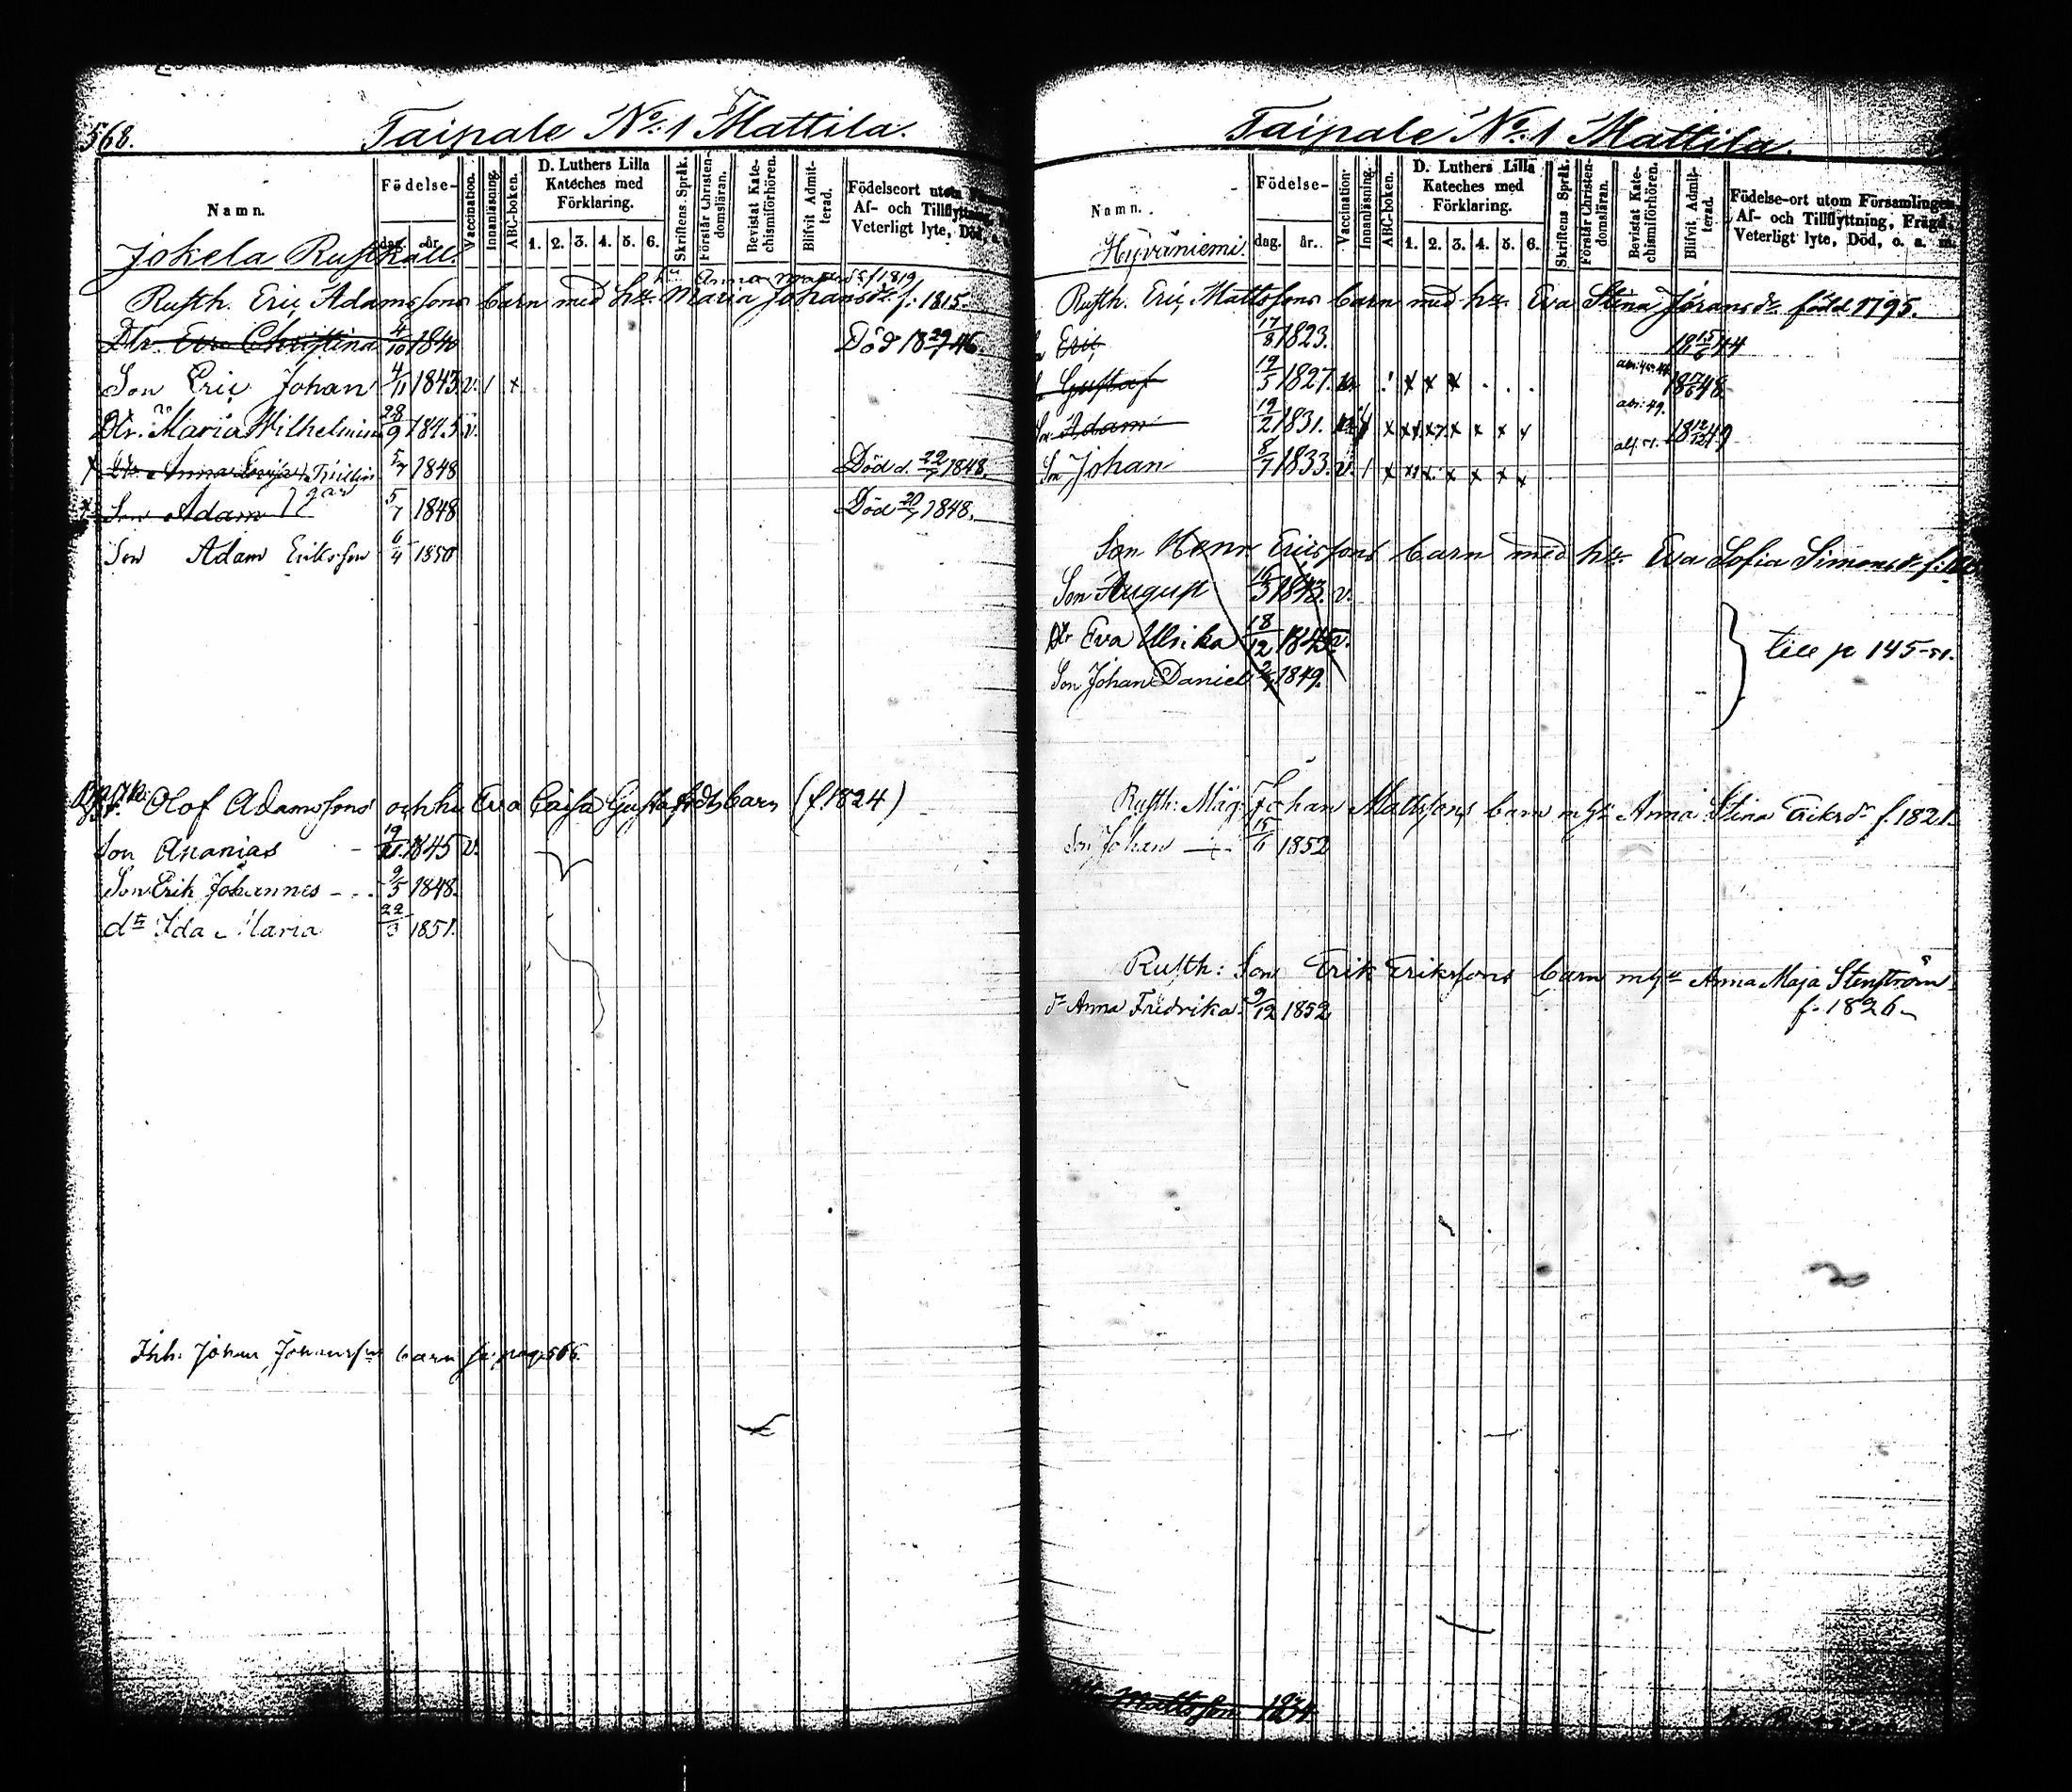 568.
Taipale No: 1 Mattila.
Namn.
Födelse-
dag. år.
Vaccination.
Innanläsning.
ABC-boken.
D. Luthers Lilla Kateches med Förklaring.
1. 2. 3. 4. 5. 6.
Skriftens Språk.
Förstår Christendomsläran.
Bevistat Katechismiförhören.
Blifvit Admitterad.
Födelseort utom
Af- och Tillflyttning,
Veterligt lyte, Död, o.
Jokela Rusthåll.
Anna f 1819
Rusth. Eric Adamssons barn med h. Maria Johansdr. f. 1815.
Dtr. Eva Christina 4/10 1840 Död 18 29/7 46
Son Eric Johan 4/11 1843. v. 1 x
Dtr. Maria Wilhelmina 28/9 1845 v.
Anna 5/7 1848 Död d. 22/7 1848.
Son Adam 5/7 1848 Död 20/7 1848.
Son Adam Eriksson 6/4 1850
Olof Adamssons och hu Eva Caisa Gustafsdtrs barn (f. 1824)
Son Ananias 19/ 1845 v.
Son Erik Johannes 9/5 1848.
dr Ida Maria 22/3 1851.
Inh. Johan Johansson barn se pag. 566.
Taipale No: 1 Mattila.
Namn.
Födelse-
dag. år.
Vaccination.
Innanläsning.
ABC-boken.
D. Luthers Lilla Kateches med Förklaring.
1. 2. 3. 4. 5. 6.
Skriftens Språk.
Förstår Christendomsläran.
Bevistat Katechismiförhören.
Blifvit Admitterad.
Födelse-ort utom Församlingen,
Af- och Tillflyttning, Frägd,
Veterligt lyte, Död, o. a. m.
Hyväniemi.
Rusth. Eric Mattssons barn med h. Eva Stina Jöransdr. född 1795.
Eric 17/8 1823. 18 15/6 44
Gustaf 19/5 1827. x x x 18 48
Adam 19/2 1831. x x x x x x 49. 18 49
Son Johan 8/7 1833. v. 1 x x x x x x
Son Henr. Ericssons barn med h. Eva Sofia Simonsdr f.
Son August 15/3 1843. v.
Dtr Eva Ulrika 18/12 1845 v.
Son Johan Daniel 1849.
till p 145
Rusth: Måg Johan Matssons barn m h Anna Stina Eriksdr f. 1821.
Son Johan 15/6 1852
Rusth: Son Erik Erikssons barn m h Anna Maja Stenström
f. 1826
dr Anna Fredrika 9/12 1852
Mattsson